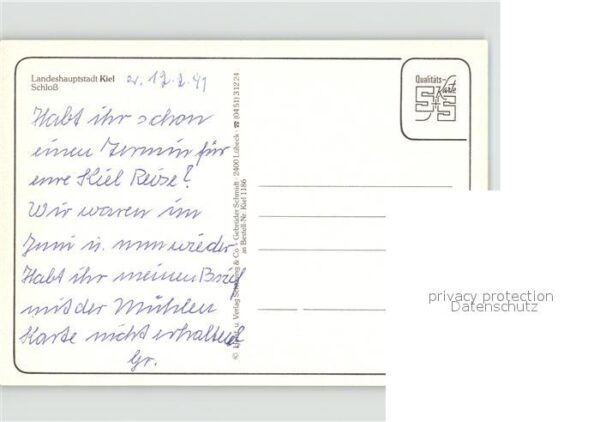 Landeshauptstadt Kiel
Schloß
Habt ihr schon
einen Termin für
eure Kiel Reise?
Wir waren im
Juni u. nun wieder
Habt ihr meinen Brief
mit der Mühlen
Karte nicht erhalten?
Gr.
Gebrüder Schmidt · 2400 Lübeck · ☎ (04 51) 3 12 24
Bestell-Nr. Kiel 1186
Qualitäts-
Karte
S S
privacy protection
Datenschutz